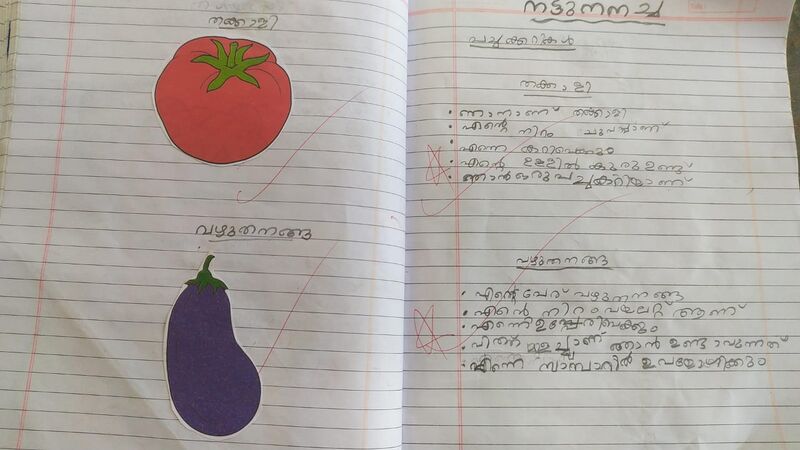 തക്കാളി
വഴുതനങ്ങ
നട്ടുനനച്ച
പച്ചക്കറികൾ
തക്കാളി
• ഞാനാണ് തക്കാളി
• എന്റെ നിറം ചുവപ്പാണ്
• എന്നെ കറിവെക്കും
• എന്റെ ഉള്ളിൽ കുരു ഉണ്ട്
• ഞാൻ ഒരു പച്ചക്കറിയാണ്
വഴുതനങ്ങ
• എന്റെ പേര് വഴുതനങ്ങ
• എന്റെ നിറം വയലറ്റ് ആണ്
• എന്നെ ഉപ്പേരിവെക്കും
• വിത്ത് മുളച്ചാണ് ഞാൻ ഉണ്ടാവുന്നത്
• എന്നെ സാമ്പാറിൽ ഉപയോഗിക്കും